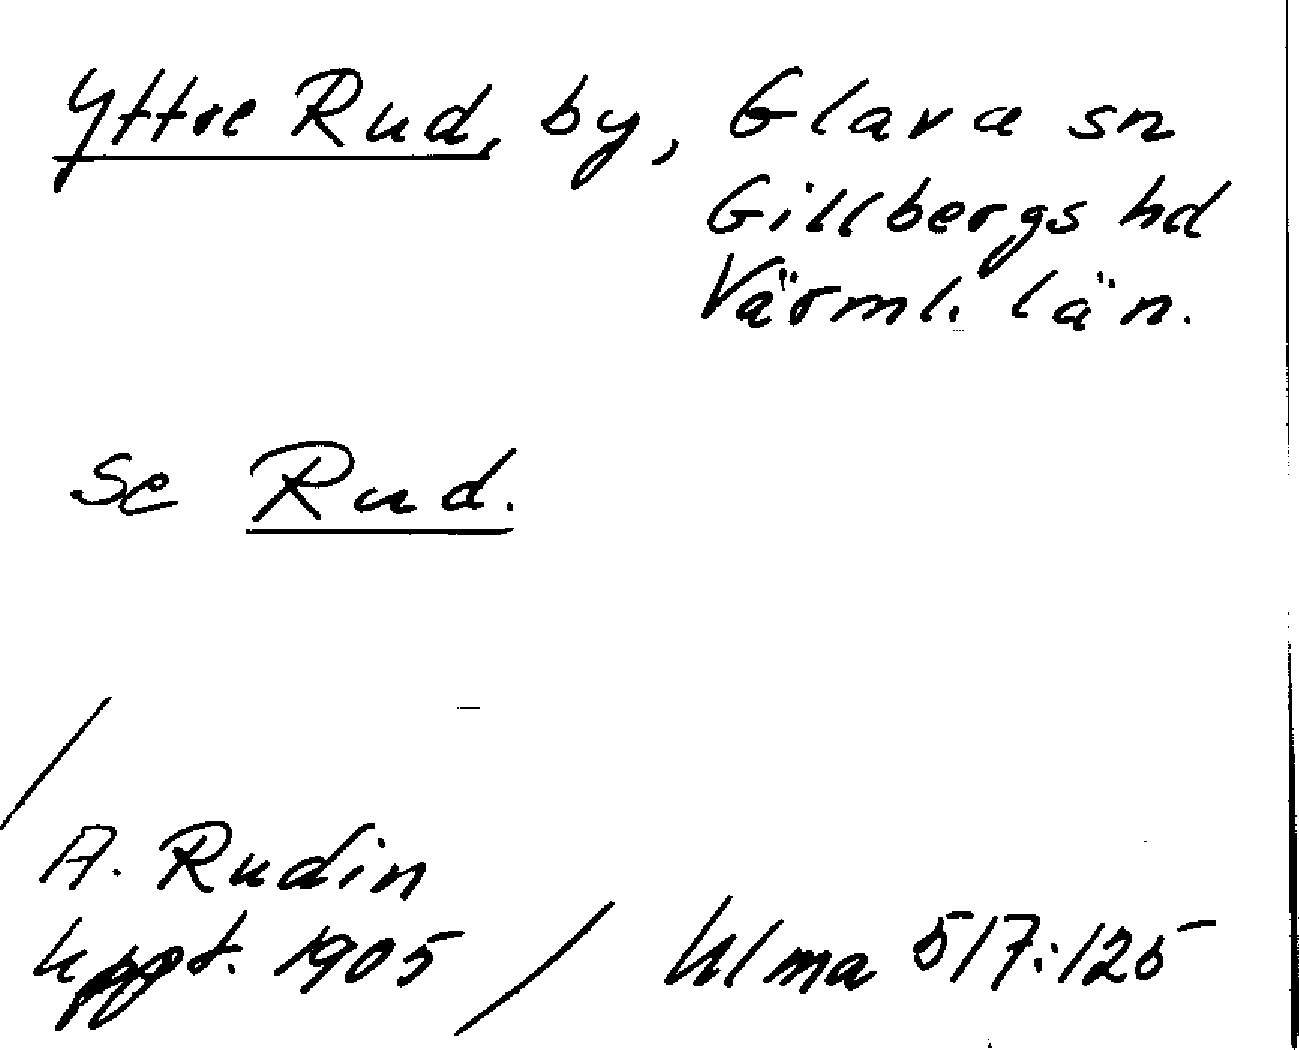 Yttre Rud, by, Glava sn
Gillbergs hd
Värml. län.
Se Rud.
A. Rudin
uppt. 1905 / Ulma 517:125